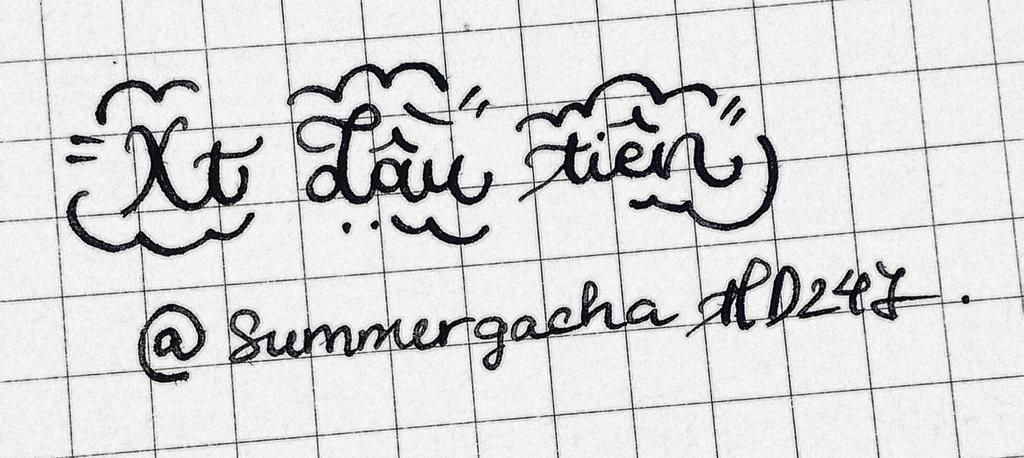 Xt đầu tiên
@Summergacha HD247.